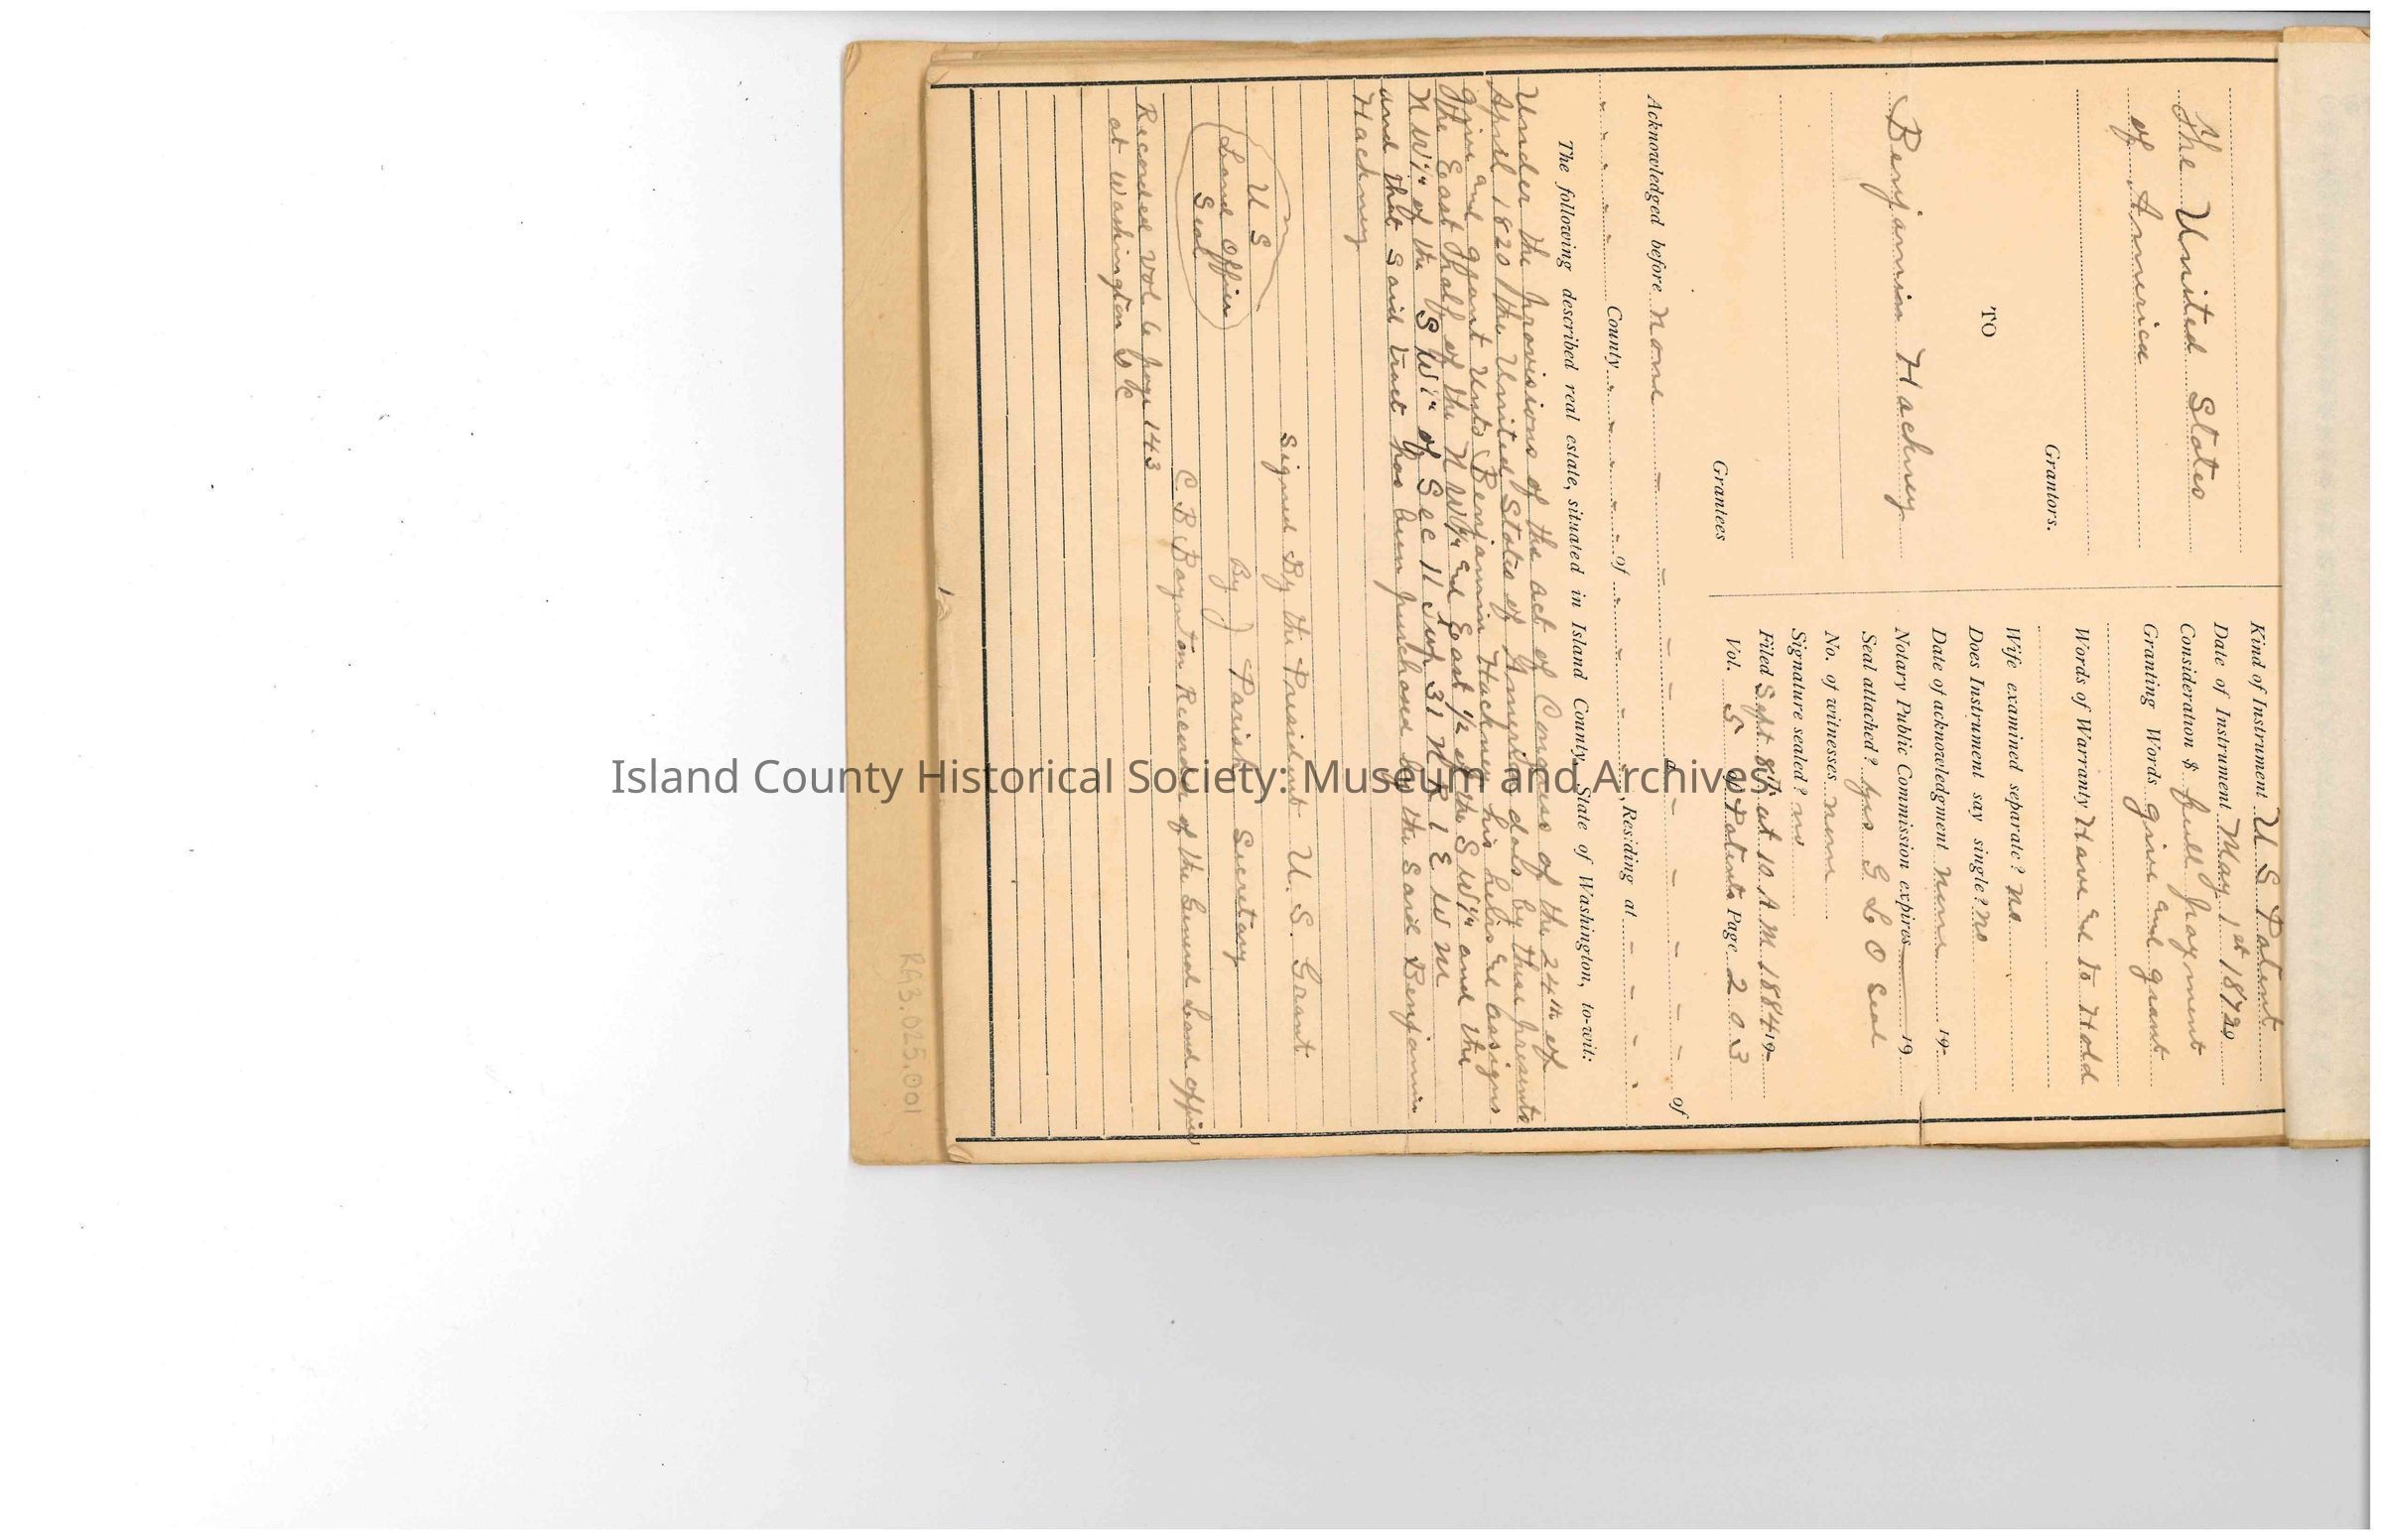 The United States
of America
Grantors.
TO
Benjamin Hackney
Grantees
Kind of Instrument U S Patent
Date of Instrument May 1st 1872
Consideration $ full payment
Granting Words give and grant
Words of Warranty Have and to Hold
Wife examined separate? no
Does Instrument say single? no
Date of acknowledgment None 19
Notary Public Commission expires 19
Seal attached? yes G L O Seal
No. of witnesses none
Signature sealed? no
Filed Sept 8th at 10 A M 1884 19
Vol. 5 of Patents Page 2 0 3
Acknowledged before None a of
County of Residing at
The following described real estate, situated in Island County, State of Washington, to-wit:
Under the provisions of the act of Congress of the 24th of
April 1820 the United States of America does by these presents
give and grant unto Benjamin Hackney his heirs and assigns
The East half of the N W 1/4 and East 1/2 of the S W 1/4 and the
N W 1/4 of the S W 1/4 of Sec 11 Twp 31 N R 1 E W M
and that said tract has been purchased by the said Benjamin
Hackney
Signed By the President U. S. Grant
U S
Land Office
Seal
By Parish Secretary
C B Boynton Recorder of the General Land Office
Recorded Vol 6 page 143
at Washington D C
1
RG3.025.001
Island County Historical Society: Museum and Archives